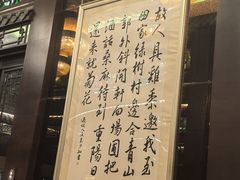 故人具雞黍邀我至
田家綠樹村邊合青山
郭外斜開軒面場圃把
酒話桑麻待到重陽日
還來就菊花